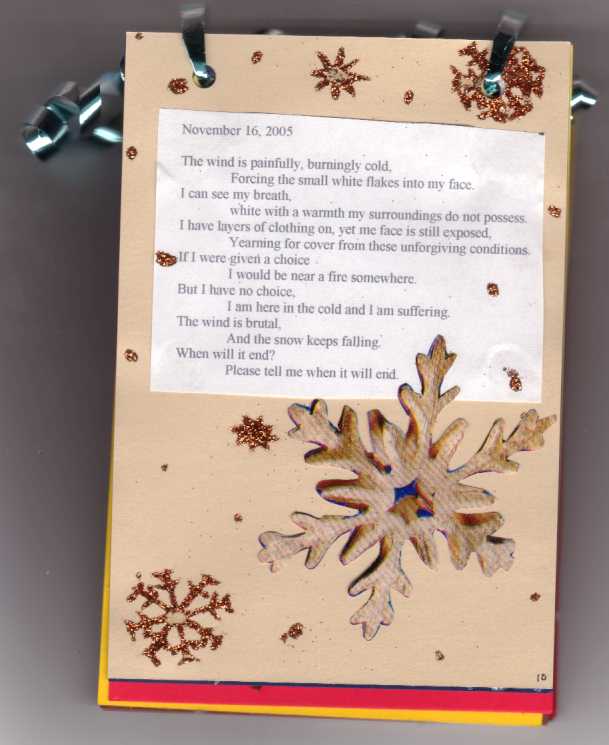 November 16, 2005
The wind is painfully, burningly cold,
Forcing the small white flakes into my face.
I can see my breath,
white with a warmth my surroundings do not possess.
I have layers of clothing on, yet me face is still exposed,
Yearning for cover from these unforgiving conditions.
If I were given a choice
I would be near a fire somewhere.
But I have no choice,
I am here in the cold and I am suffering.
The wind is brutal,
And the snow keeps falling.
When will it end?
Please tell me when it will end.
10